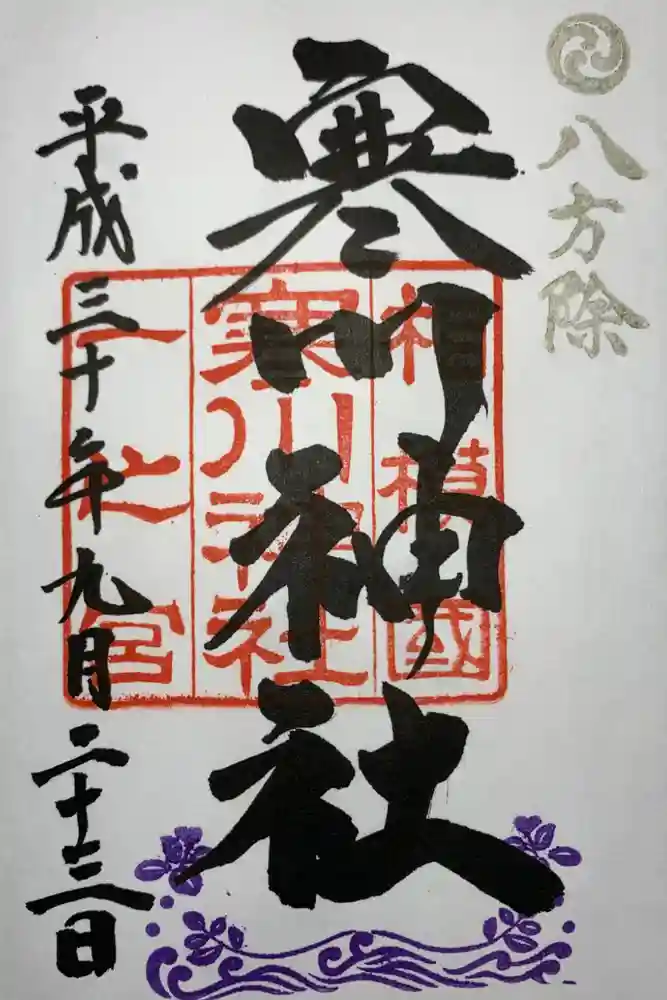 八方除
相模國
寒川神社
一之宮
寒川神社
平成三十年九月二十三日